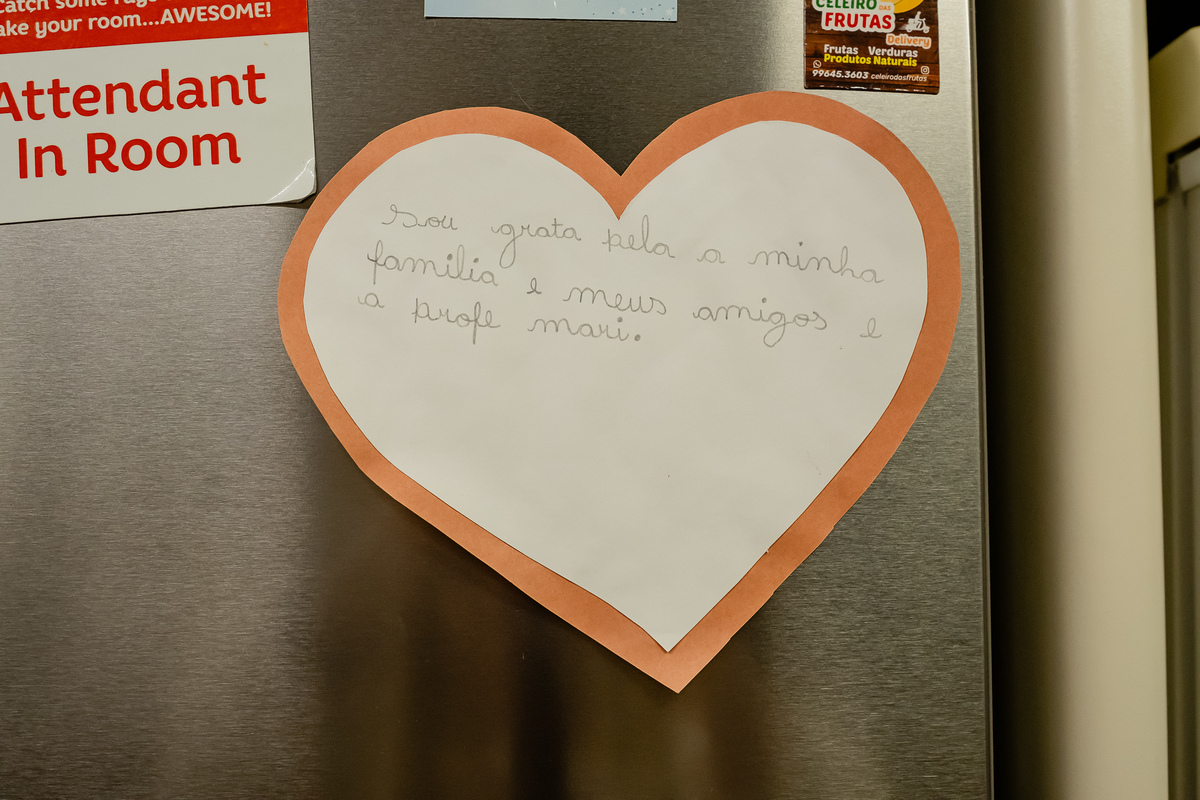 ake your room...AWESOME!
Attendant
In Room
CELEIRO DAS
FRUTAS
Delivery
Frutas Verduras
Produtos Naturais
99645.3603 celeirodasfrutas
Sou grata pela a minha
familia e meus amigos e
a profe mari.